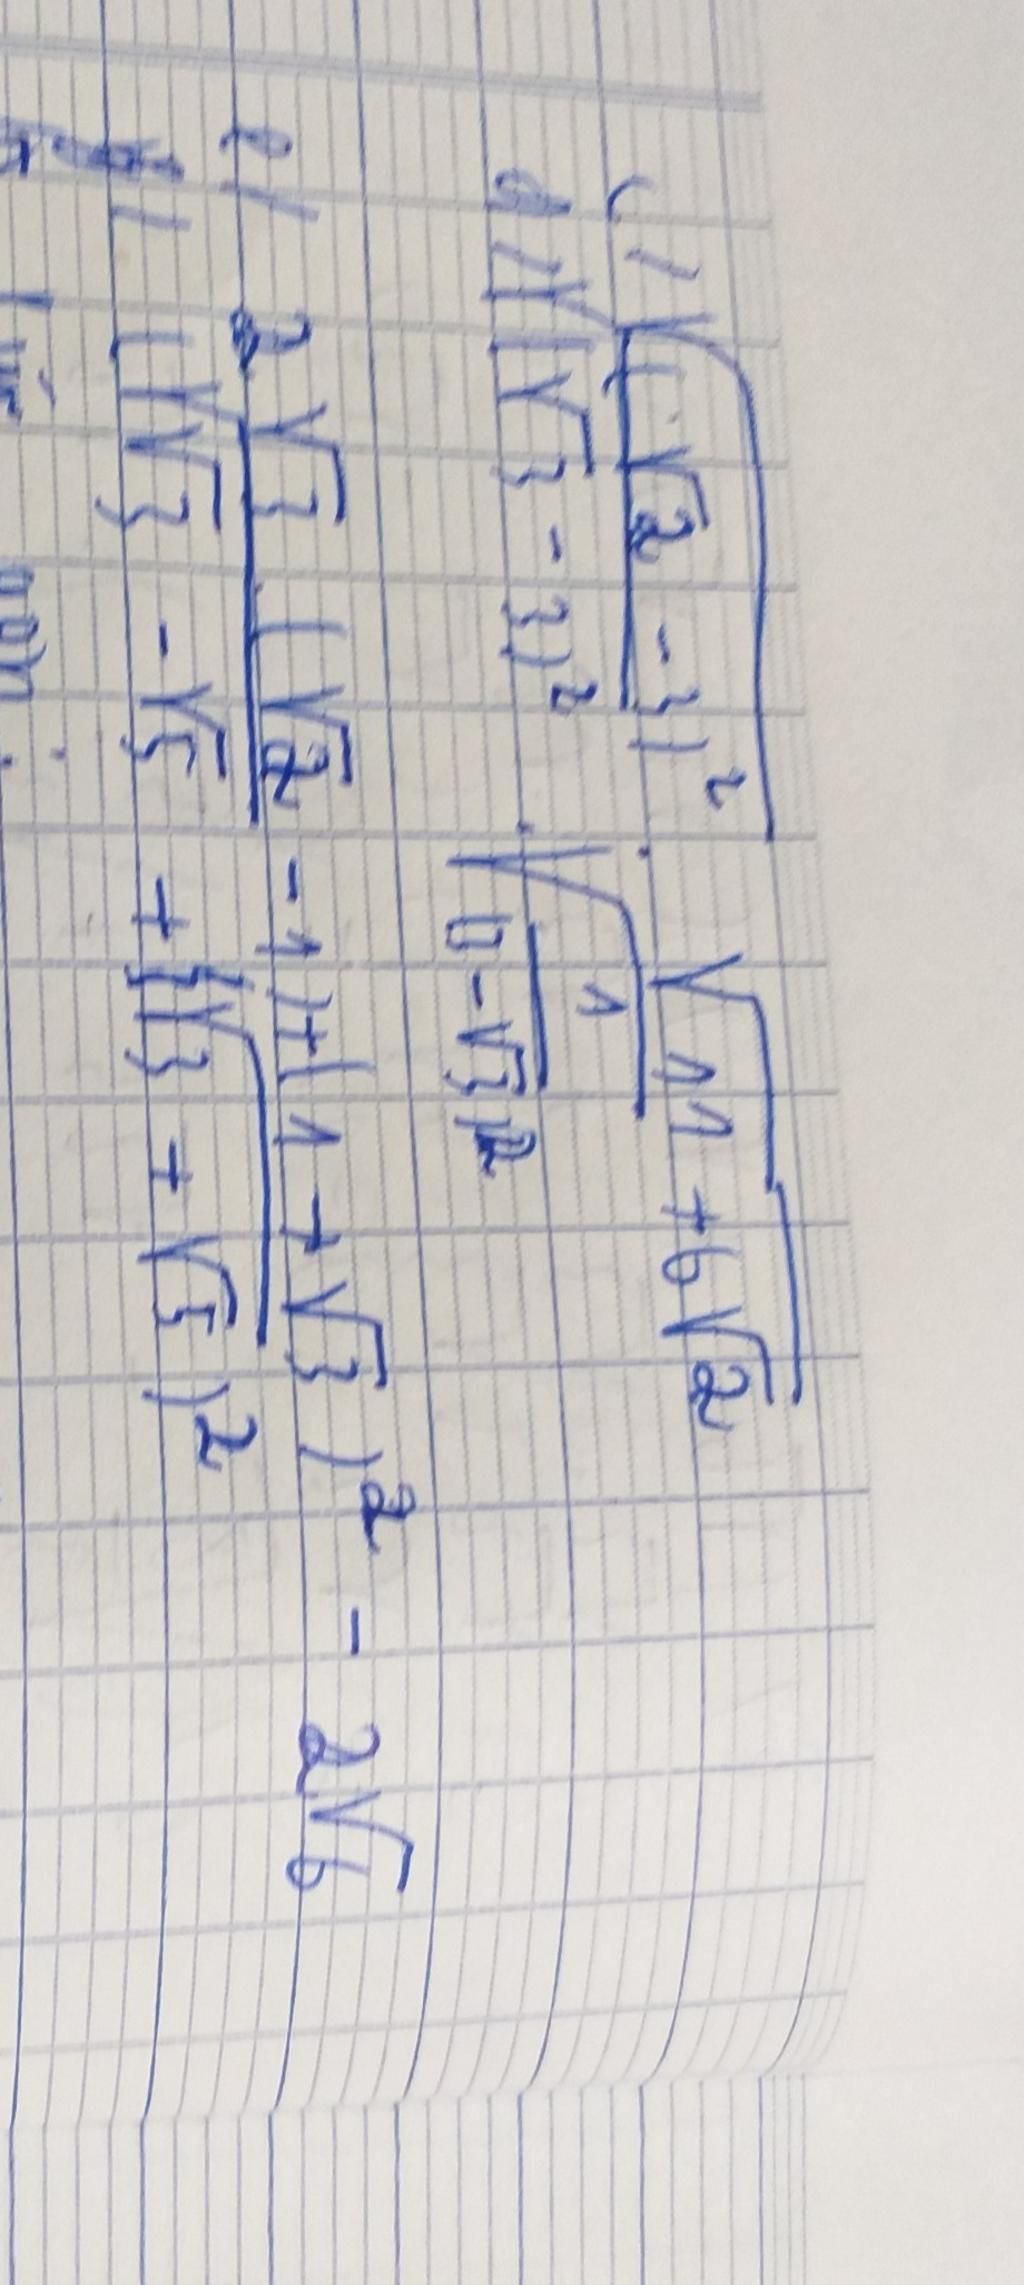 c/ √(√2 - 3)² · √11 + 6√2
d/ √(√3 - 3)² · √1/(1 - √3)²
e/ 2√3 (√2 - 1) + (1 + √3)² - 2√6
√(√3 - √5 + √(√3 + √5)²